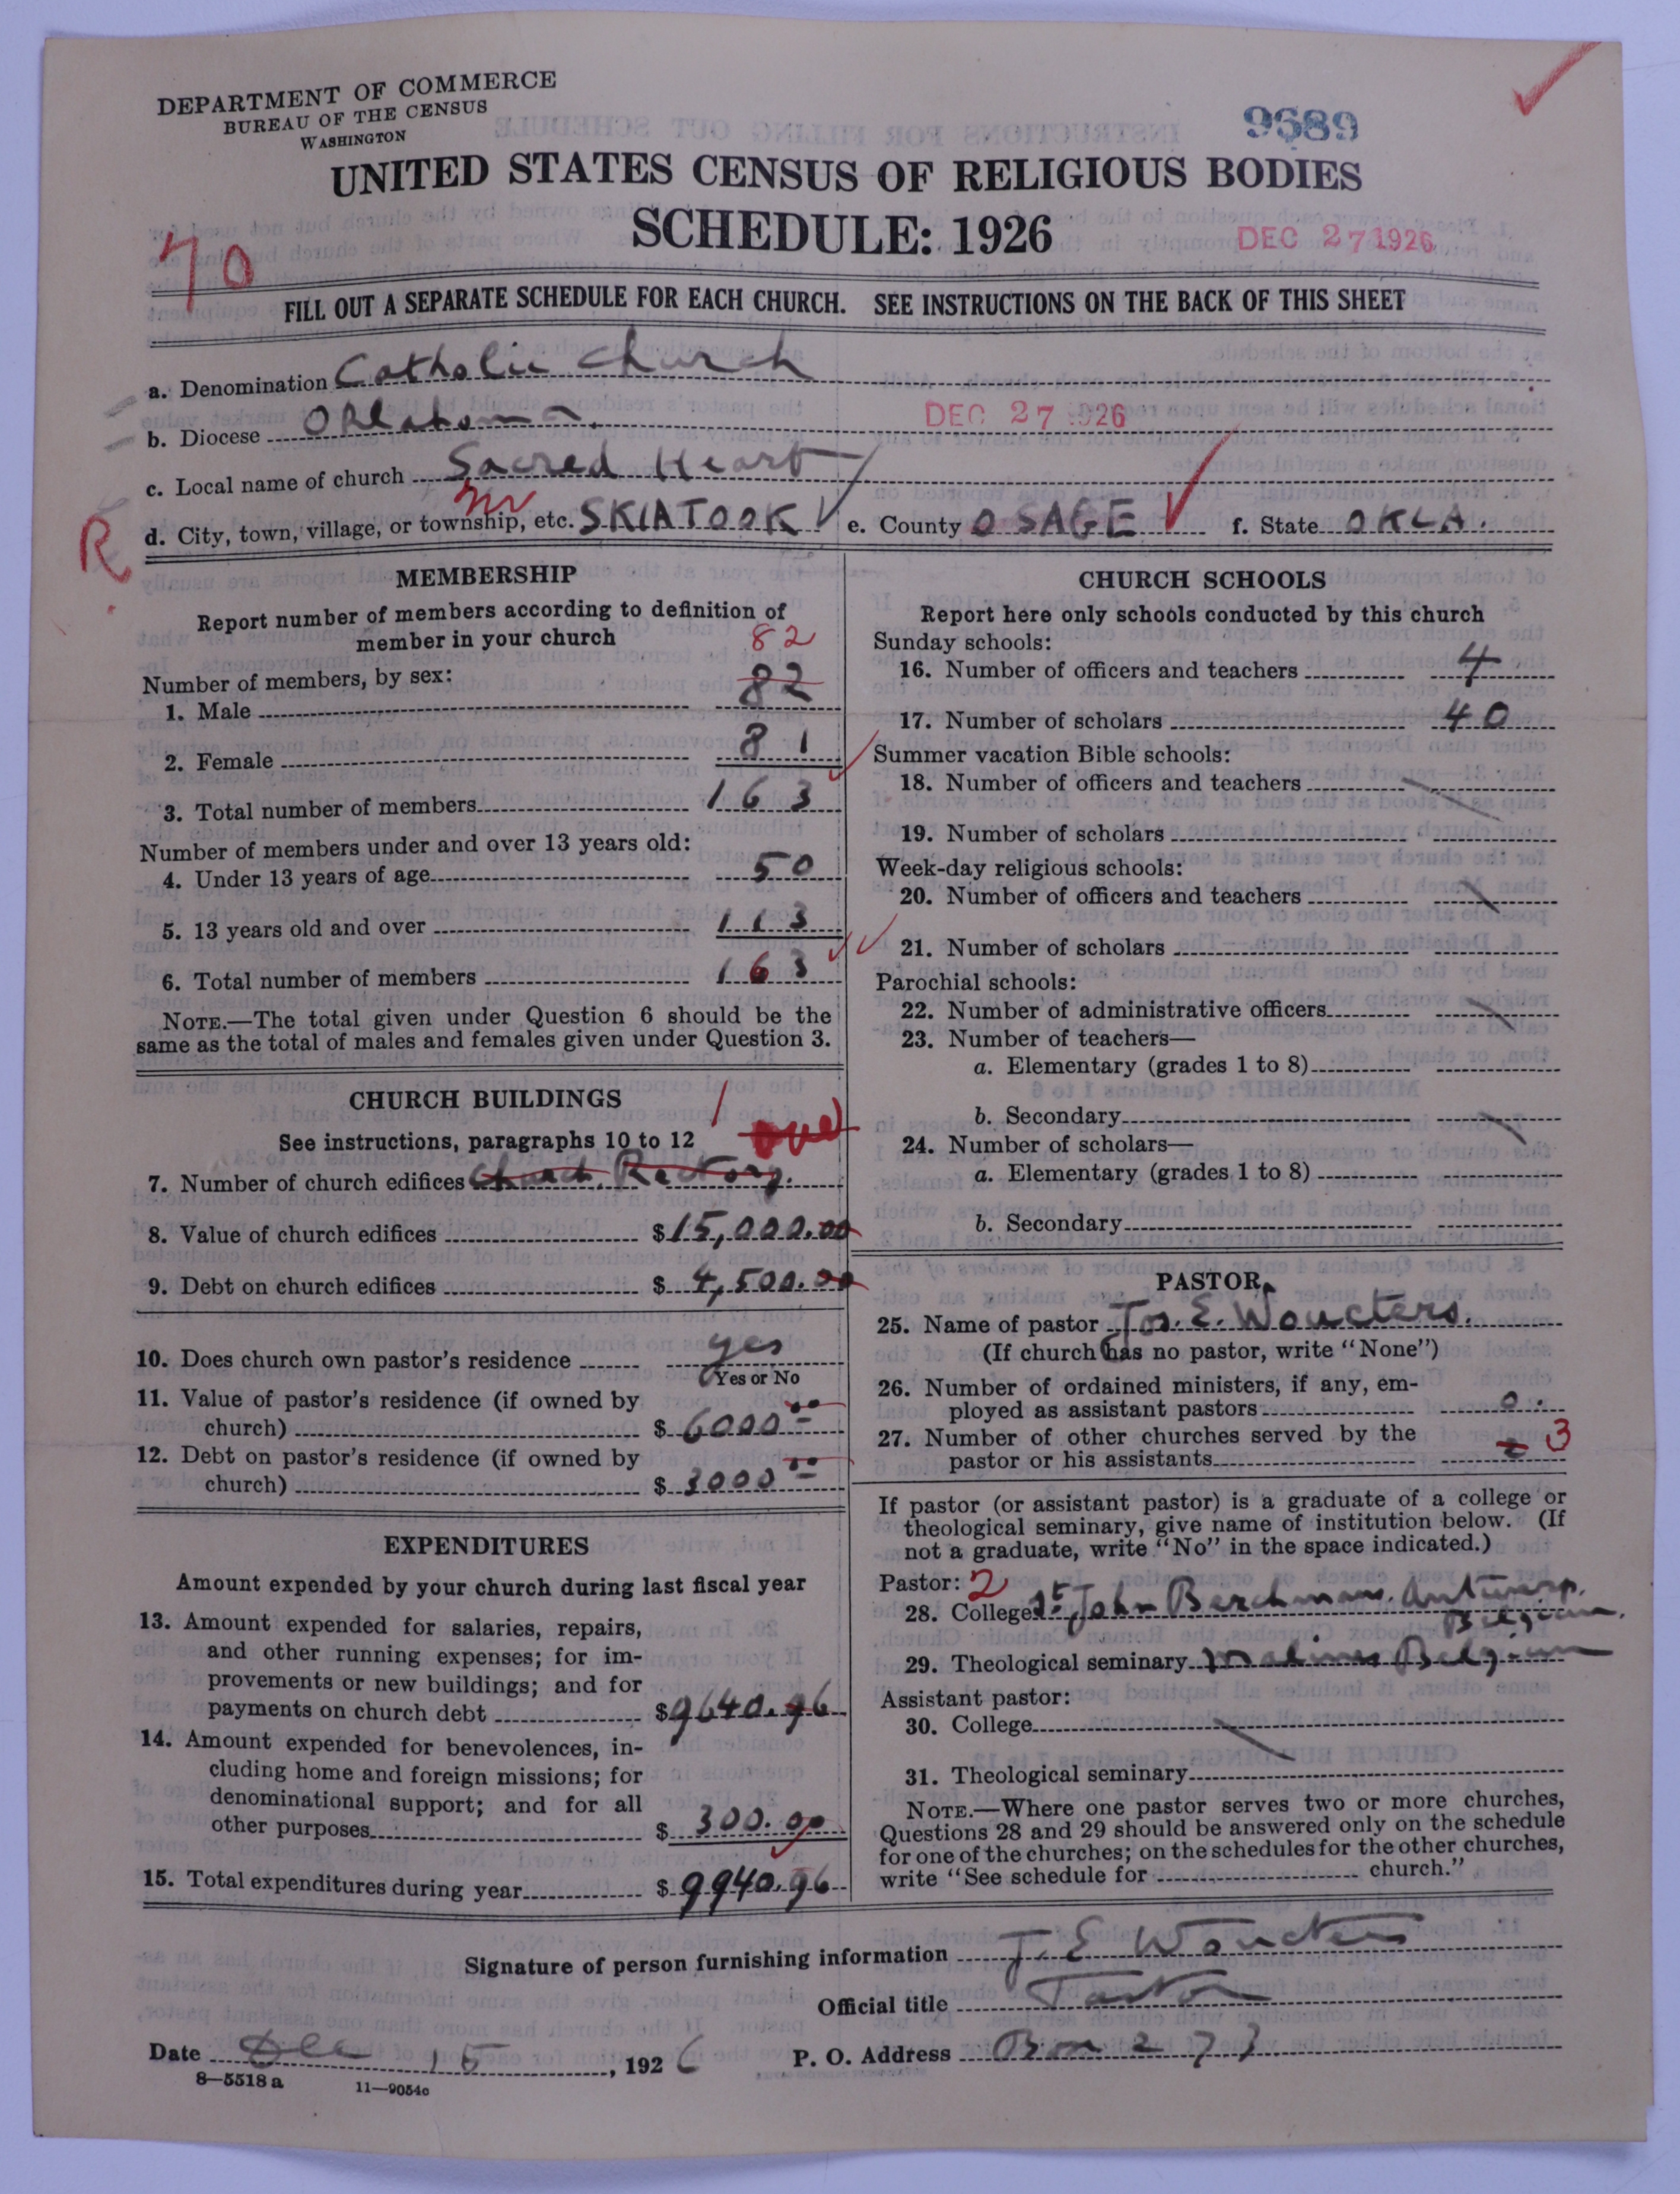 DEPARTMENT OF COMMERCE
BUREAU OF THE CENSUS
WASHINGTON
9689
UNITED STATES CENSUS OF RELIGIOUS BODIES
SCHEDULE: 1926
DEC 27 1926
70
FILL OUT A SEPARATE SCHEDULE FOR EACH CHURCH. SEE INSTRUCTIONS ON THE BACK OF THIS SHEET
a. Denomination Catholic Church
b. Diocese Oklahoma.
DEC 27 1926
c. Local name of church Sacred Heart
R
d. City, town, village, or township, etc. SKIATOOK e. County OSAGE f. State OKLA.
MEMBERSHIP
Report number of members according to definition of
member in your church
82
Number of members, by sex:
1. Male 82
2. Female 81
3. Total number of members 163
Number of members under and over 13 years old:
4. Under 13 years of age 50
5. 13 years old and over 113
6. Total number of members 163
NOTE.—The total given under Question 6 should be the
same as the total of males and females given under Question 3.
CHURCH BUILDINGS
1
See instructions, paragraphs 10 to 12
one
7. Number of church edifices Church, Rectory.
8. Value of church edifices $15,000.00
9. Debt on church edifices $ 4,500.00
10. Does church own pastor's residence yes
Yes or No
11. Value of pastor's residence (if owned by
church) $ 6000 00
12. Debt on pastor's residence (if owned by
church) $ 3000 00
EXPENDITURES
Amount expended by your church during last fiscal year
13. Amount expended for salaries, repairs,
and other running expenses; for im-
provements or new buildings; and for
payments on church debt $9640.96
14. Amount expended for benevolences, in-
cluding home and foreign missions; for
denominational support; and for all
other purposes $ 300.00
15. Total expenditures during year $ 9940.96
CHURCH SCHOOLS
Report here only schools conducted by this church
Sunday schools:
16. Number of officers and teachers 4
17. Number of scholars 40
Summer vacation Bible schools:
18. Number of officers and teachers
19. Number of scholars
Week-day religious schools:
20. Number of officers and teachers
21. Number of scholars
Parochial schools:
22. Number of administrative officers
23. Number of teachers—
a. Elementary (grades 1 to 8)
b. Secondary
24. Number of scholars—
a. Elementary (grades 1 to 8)
b. Secondary
PASTOR
25. Name of pastor Jos. E. Woucters.
(If church has no pastor, write "None")
26. Number of ordained ministers, if any, em-
ployed as assistant pastors 0.
27. Number of other churches served by the
pastor or his assistants 3
If pastor (or assistant pastor) is a graduate of a college or
theological seminary, give name of institution below. (If
not a graduate, write "No" in the space indicated.)
Pastor: 2
28. College St. John Berchmans. Antwerp.
Belgium.
29. Theological seminary Malines Belgium
Assistant pastor:
30. College
31. Theological seminary
NOTE.—Where one pastor serves two or more churches,
Questions 28 and 29 should be answered only on the schedule
for one of the churches; on the schedules for the other churches,
write "See schedule for church."
Signature of person furnishing information J. E. Woucters
Official title Pastor
Date Dec 15, 1926 P. O. Address Box 273
8—5518 a 11—9054c